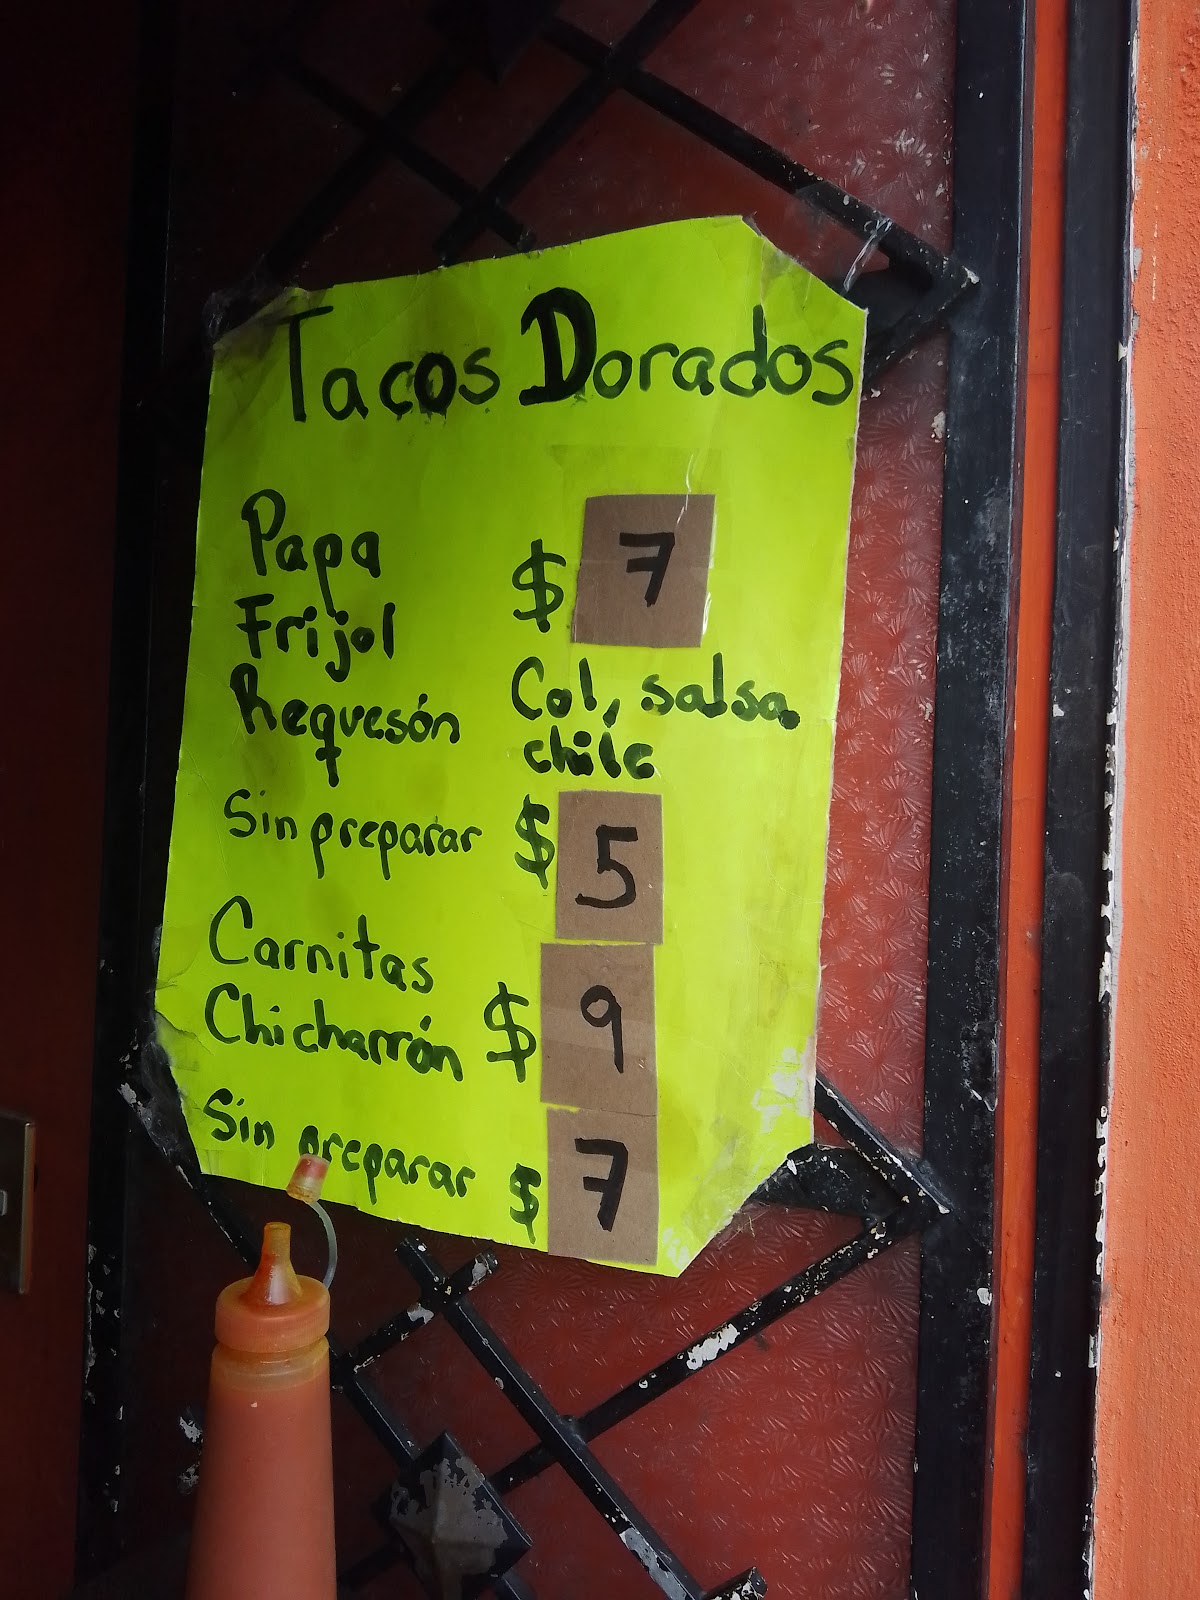 Tacos Dorados
Papa
Frijol $ 7
Requesón Col, salsa
chile
Sin preparar $ 5
Carnitas
Chicharrón $ 9
Sin preparar $ 7